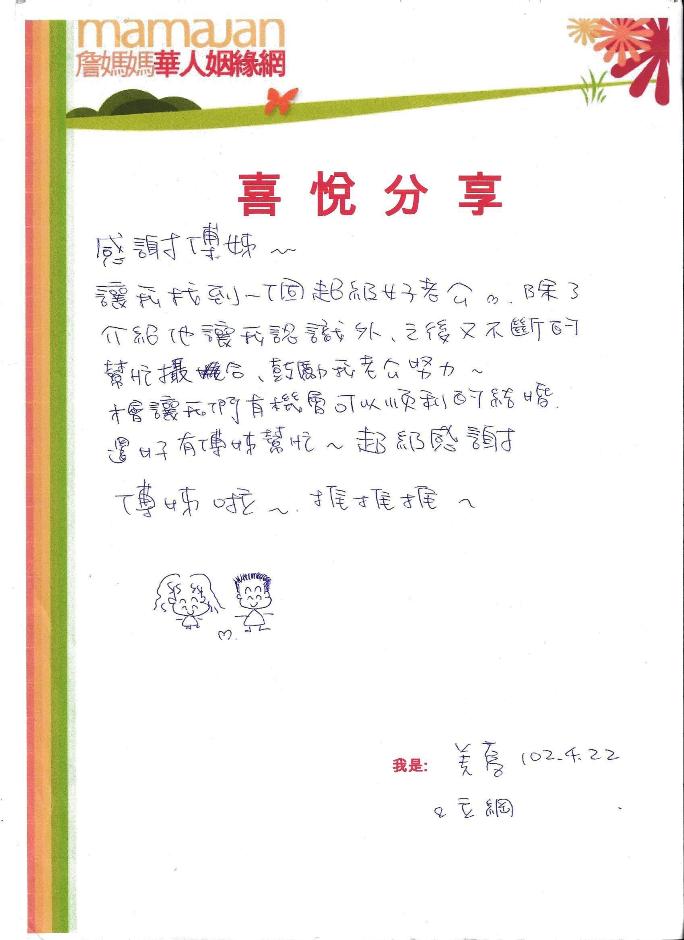 mamaJan
詹媽媽華人姻緣網
喜悅分享
感謝傳姊~
讓我找到一個超級好老公。除了
介紹他讓我認識外、之後又不斷的
幫忙撮合、鼓勵我老公努力~
才會讓我們有機會可以順利的結婚.
還好有傳姊幫忙~超級感謝
傳姊啦~.推推推~
我是: 美 102.4.22
立綱